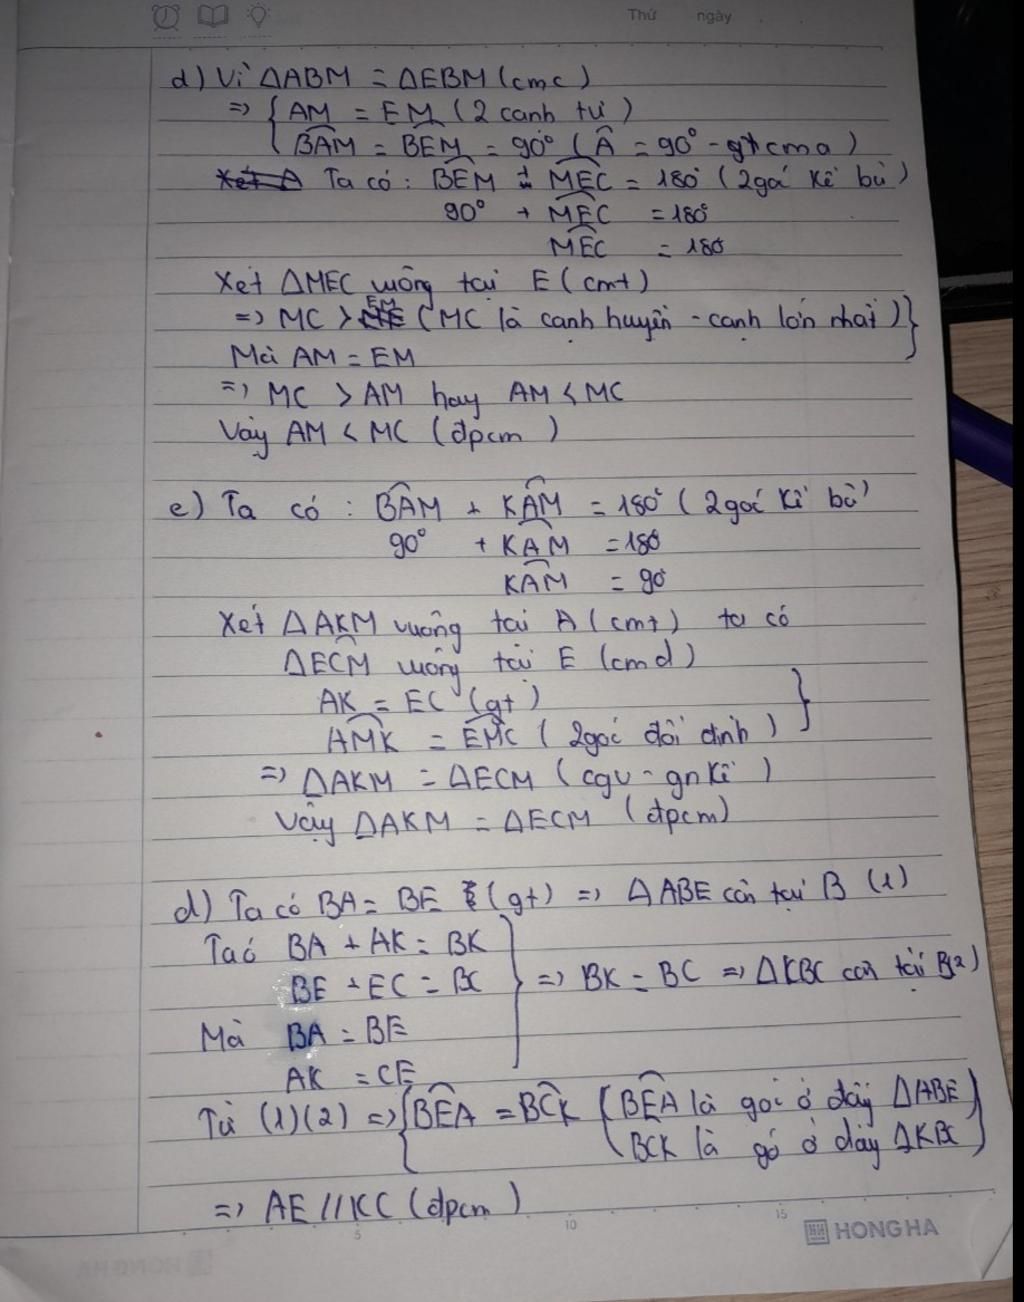 Thứ ngày
d) Vì ΔABM = ΔEBM (cmc)
=> { AM = EM (2 cạnh tư)
BAM = BEM = 90° (Â = 90° - gt cma)
Ta có: BEM + MEC = 180° (2góc kề bù)
90° + MEC = 180°
MEC = 180
Xét ΔMEC vuông tại E (cmt)
=> MC > EM (MC là cạnh huyền - cạnh lớn nhất) }
Mà AM = EM
=> MC > AM hay AM < MC
Vậy AM < MC (đpcm)
e) Ta có : BAM + KAM = 180° (2góc kề bù)
90° + KAM = 180
KAM = 90
Xét ΔAKM vuông tại A (cmt) ta có
ΔECM vuông tại E (cmd)
AK = EC (gt) }
AMK = EMC (2góc đối đỉnh)
=> ΔAKM = ΔECM (cgv - gn kề)
Vậy ΔAKM = ΔECM (đpcm)
d) Ta có BA = BE (gt) => ΔABE cân tại B (1)
Ta có BA + AK = BK
BE + EC = BC } => BK = BC => ΔKBC cân tại B(2)
Mà BA = BE
AK = CE
Từ (1)(2) => { BEA = BCK ( BEA là góc ở đáy ΔABE
BCK là gó ở đáy ΔKBC )
=> AE // KC (đpcm)
5 10 15
HONG HA